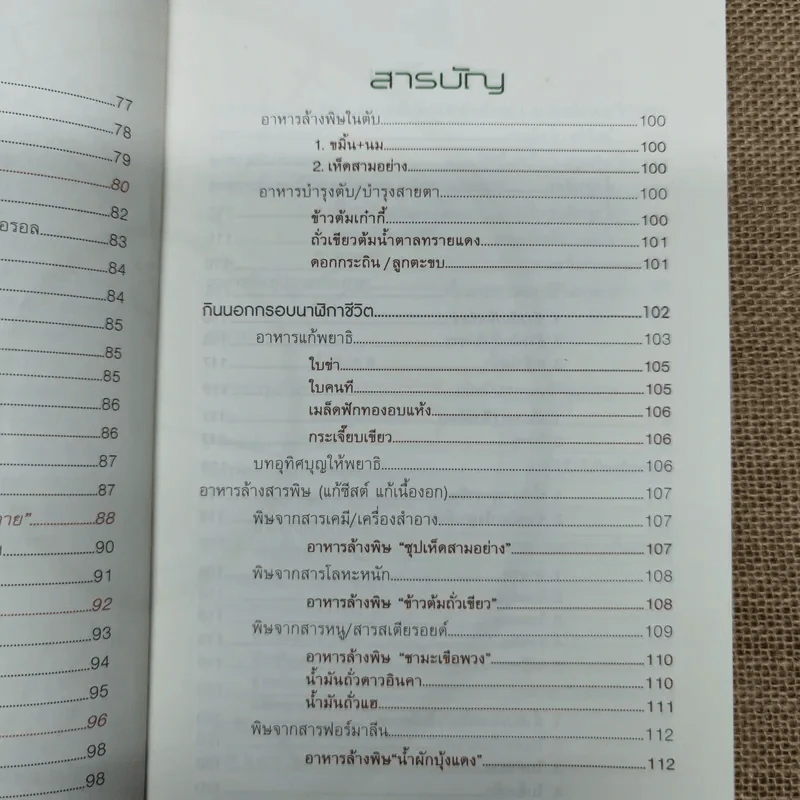 77
78
79
80
82
อรอล 83
84
84
85
85
85
86
86
87
87
าย" 88
90
91
92
93
94
95
96
98
98
สารบัญ
อาหารล้างพิษในตับ 100
1. ขมิ้น+นม 100
2. เห็ดสามอย่าง 100
อาหารบำรุงตับ/บำรุงสายตา 100
ข้าวต้มเก๋ากี้ 100
ถั่วเขียวต้มน้ำตาลทรายแดง 101
ดอกกระถิน /ลูกตะขบ 101
กินนอกกรอบนาฬิกาชีวิต 102
อาหารแก้พยาธิ 103
ใบข่า 105
ใบคนที 105
เมล็ดฟักทองอบแห้ง 106
กระเจี๊ยบเขียว 106
บทอุทิศบุญให้พยาธิ 106
อาหารล้างสารพิษ (แก้ซีสต์ แก้เนื้องอก) 107
พิษจากสารเคมี/เครื่องสำอาง 107
อาหารล้างพิษ "ซุปเห็ดสามอย่าง" 107
พิษจากสารโลหะหนัก 108
อาหารล้างพิษ "ข้าวต้มถั่วเขียว" 108
พิษจากสารหนู/สารสเตียรอยด์ 109
อาหารล้างพิษ "ชามะเขือพวง" 110
น้ำมันถั่วดาวอินคา 110
น้ำมันถั่วแฮ 111
พิษจากสารฟอร์มาลีน 112
อาหารล้างพิษ"น้ำผักบุ้งแดง" 112